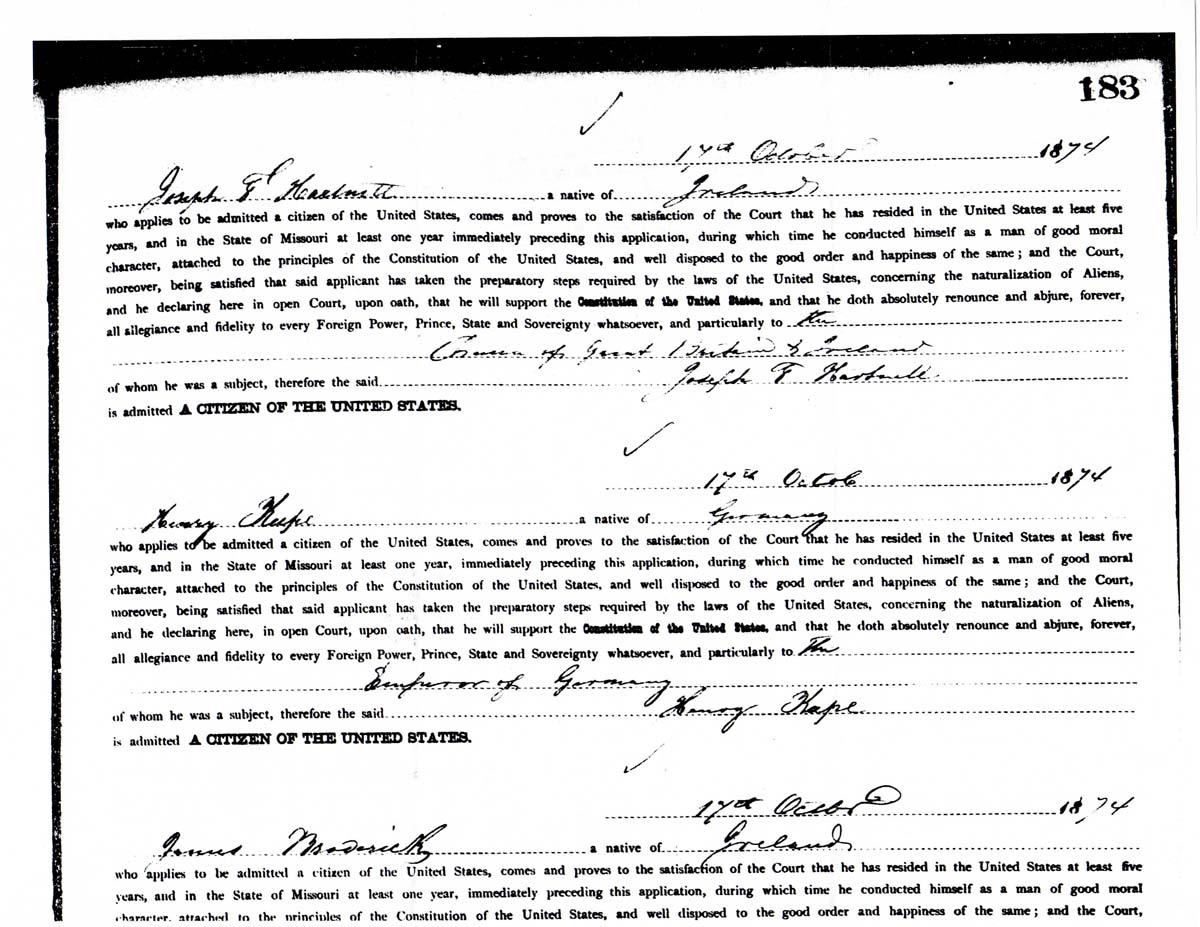 183
17th October 1874
Joseph F Hartnett a native of Ireland
who applies to be admitted a citizen of the United States, comes and proves to the satisfaction of the Court that he has resided in the United States at least five
years, and in the State of Missouri at least one year immediately preceding this application, during which time he conducted himself as a man of good moral
character, attached to the principles of the Constitution of the United States, and well disposed to the good order and happiness of the same; and the Court,
moreover, being satisfied that said applicant has taken the preparatory steps required by the laws of the United States, concerning the naturalization of Aliens,
and he declaring here in open Court, upon oath, that he will support the Constitution of the United States, and that he doth absolutely renounce and abjure, forever,
all allegiance and fidelity to every Foreign Power, Prince, State and Sovereignty whatsoever, and particularly to the
of Great Britain & Ireland
of whom he was a subject, therefore the said Joseph F Hartnett
is admitted A CITIZEN OF THE UNITED STATES.
17th Octob 1874
Henry a native of Germany
who applies to be admitted a citizen of the United States, comes and proves to the satisfaction of the Court that he has resided in the United States at least five
years, and in the State of Missouri at least one year, immediately preceding this application, during which time he conducted himself as a man of good moral
character, attached to the principles of the Constitution of the United States, and well disposed to the good order and happiness of the same; and the Court,
moreover, being satisfied that said applicant has taken the preparatory steps required by the laws of the United States, concerning the naturalization of Aliens,
and he declaring here, in open Court, upon oath, that he will support the Constitution of the United States, and that he doth absolutely renounce and abjure, forever,
all allegiance and fidelity to every Foreign Power, Prince, State and Sovereignty whatsoever, and particularly to The
Emperor of Germany
of whom he was a subject, therefore the said Henry
is admitted A CITIZEN OF THE UNITED STATES.
17th 1874
James Broderick a native of Ireland
who applies to be admitted a citizen of the United States, comes and proves to the satisfaction of the Court that he has resided in the United States at least five
years, and in the State of Missouri at least one year, immediately preceding this application, during which time he conducted himself as a man of good moral
character, attached to the principles of the Constitution of the United States, and well disposed to the good order and happiness of the same; and the Court,